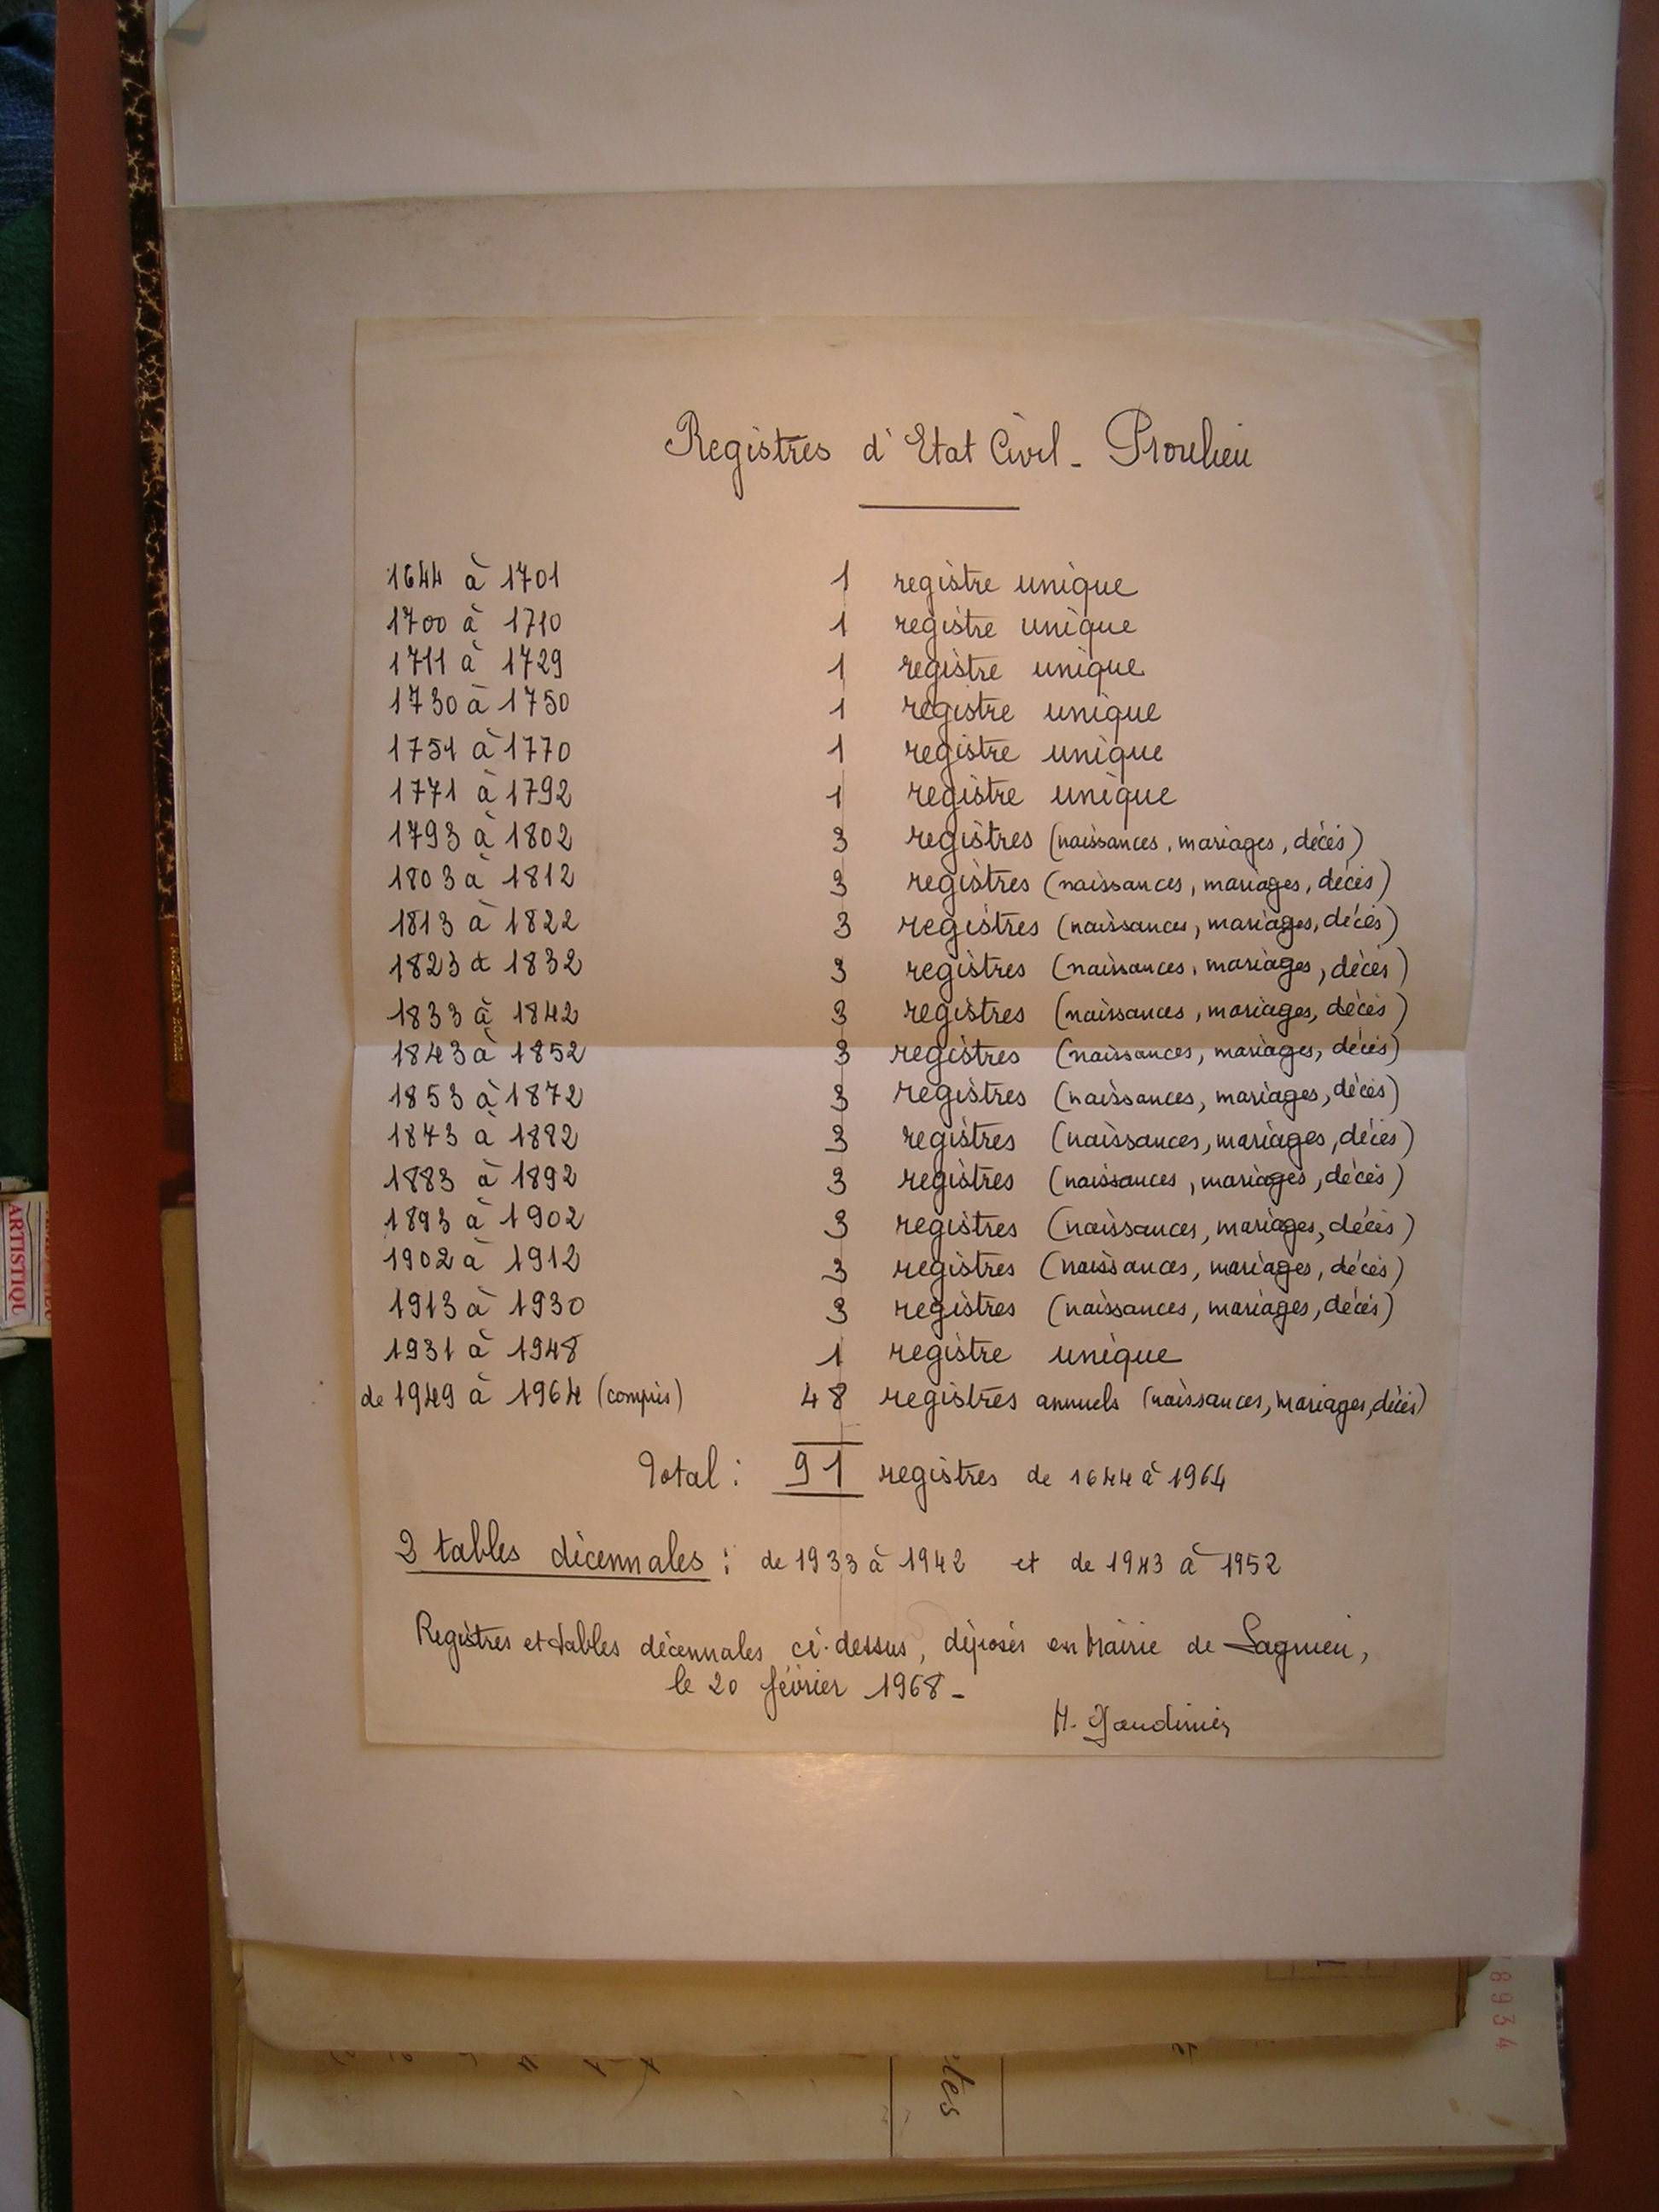 Registres d'Etat Civil - Proulieu
1644 à 1701 1 registre unique
1700 à 1710 1 registre unique
1711 à 1729 1 registre unique
1730 à 1750 1 registre unique
1751 à 1770 1 registre unique
1771 à 1792 1 registre unique
1793 à 1802 3 registres (naissances, mariages, décès)
1803 à 1812 3 registres (naissances, mariages, décès)
1813 à 1822 3 registres (naissances, mariages, décès)
1823 à 1832 3 registres (naissances, mariages, décès)
1833 à 1842 3 registres (naissances, mariages, décès)
1843 à 1852 3 registres (naissances, mariages, décès)
1853 à 1872 3 registres (naissances, mariages, décès)
1873 à 1882 3 registres (naissances, mariages, décès)
1883 à 1892 3 registres (naissances, mariages, décès)
1893 à 1902 3 registres (naissances, mariages, décès)
1902 à 1912 3 registres (naissances, mariages, décès)
1913 à 1930 3 registres (naissances, mariages, décès)
1931 à 1948 1 registre unique
de 1949 à 1964 (compris) 48 registres annuels (naissances, mariages, décès)
Total : 91 registres de 1644 à 1964
2 tables décennales : de 1933 à 1942 et de 1943 à 1952
Registres et tables décennales ci-dessus, déposés en Mairie de Lagnieu,
le 20 février 1968 -
ARTISTIQU
8934